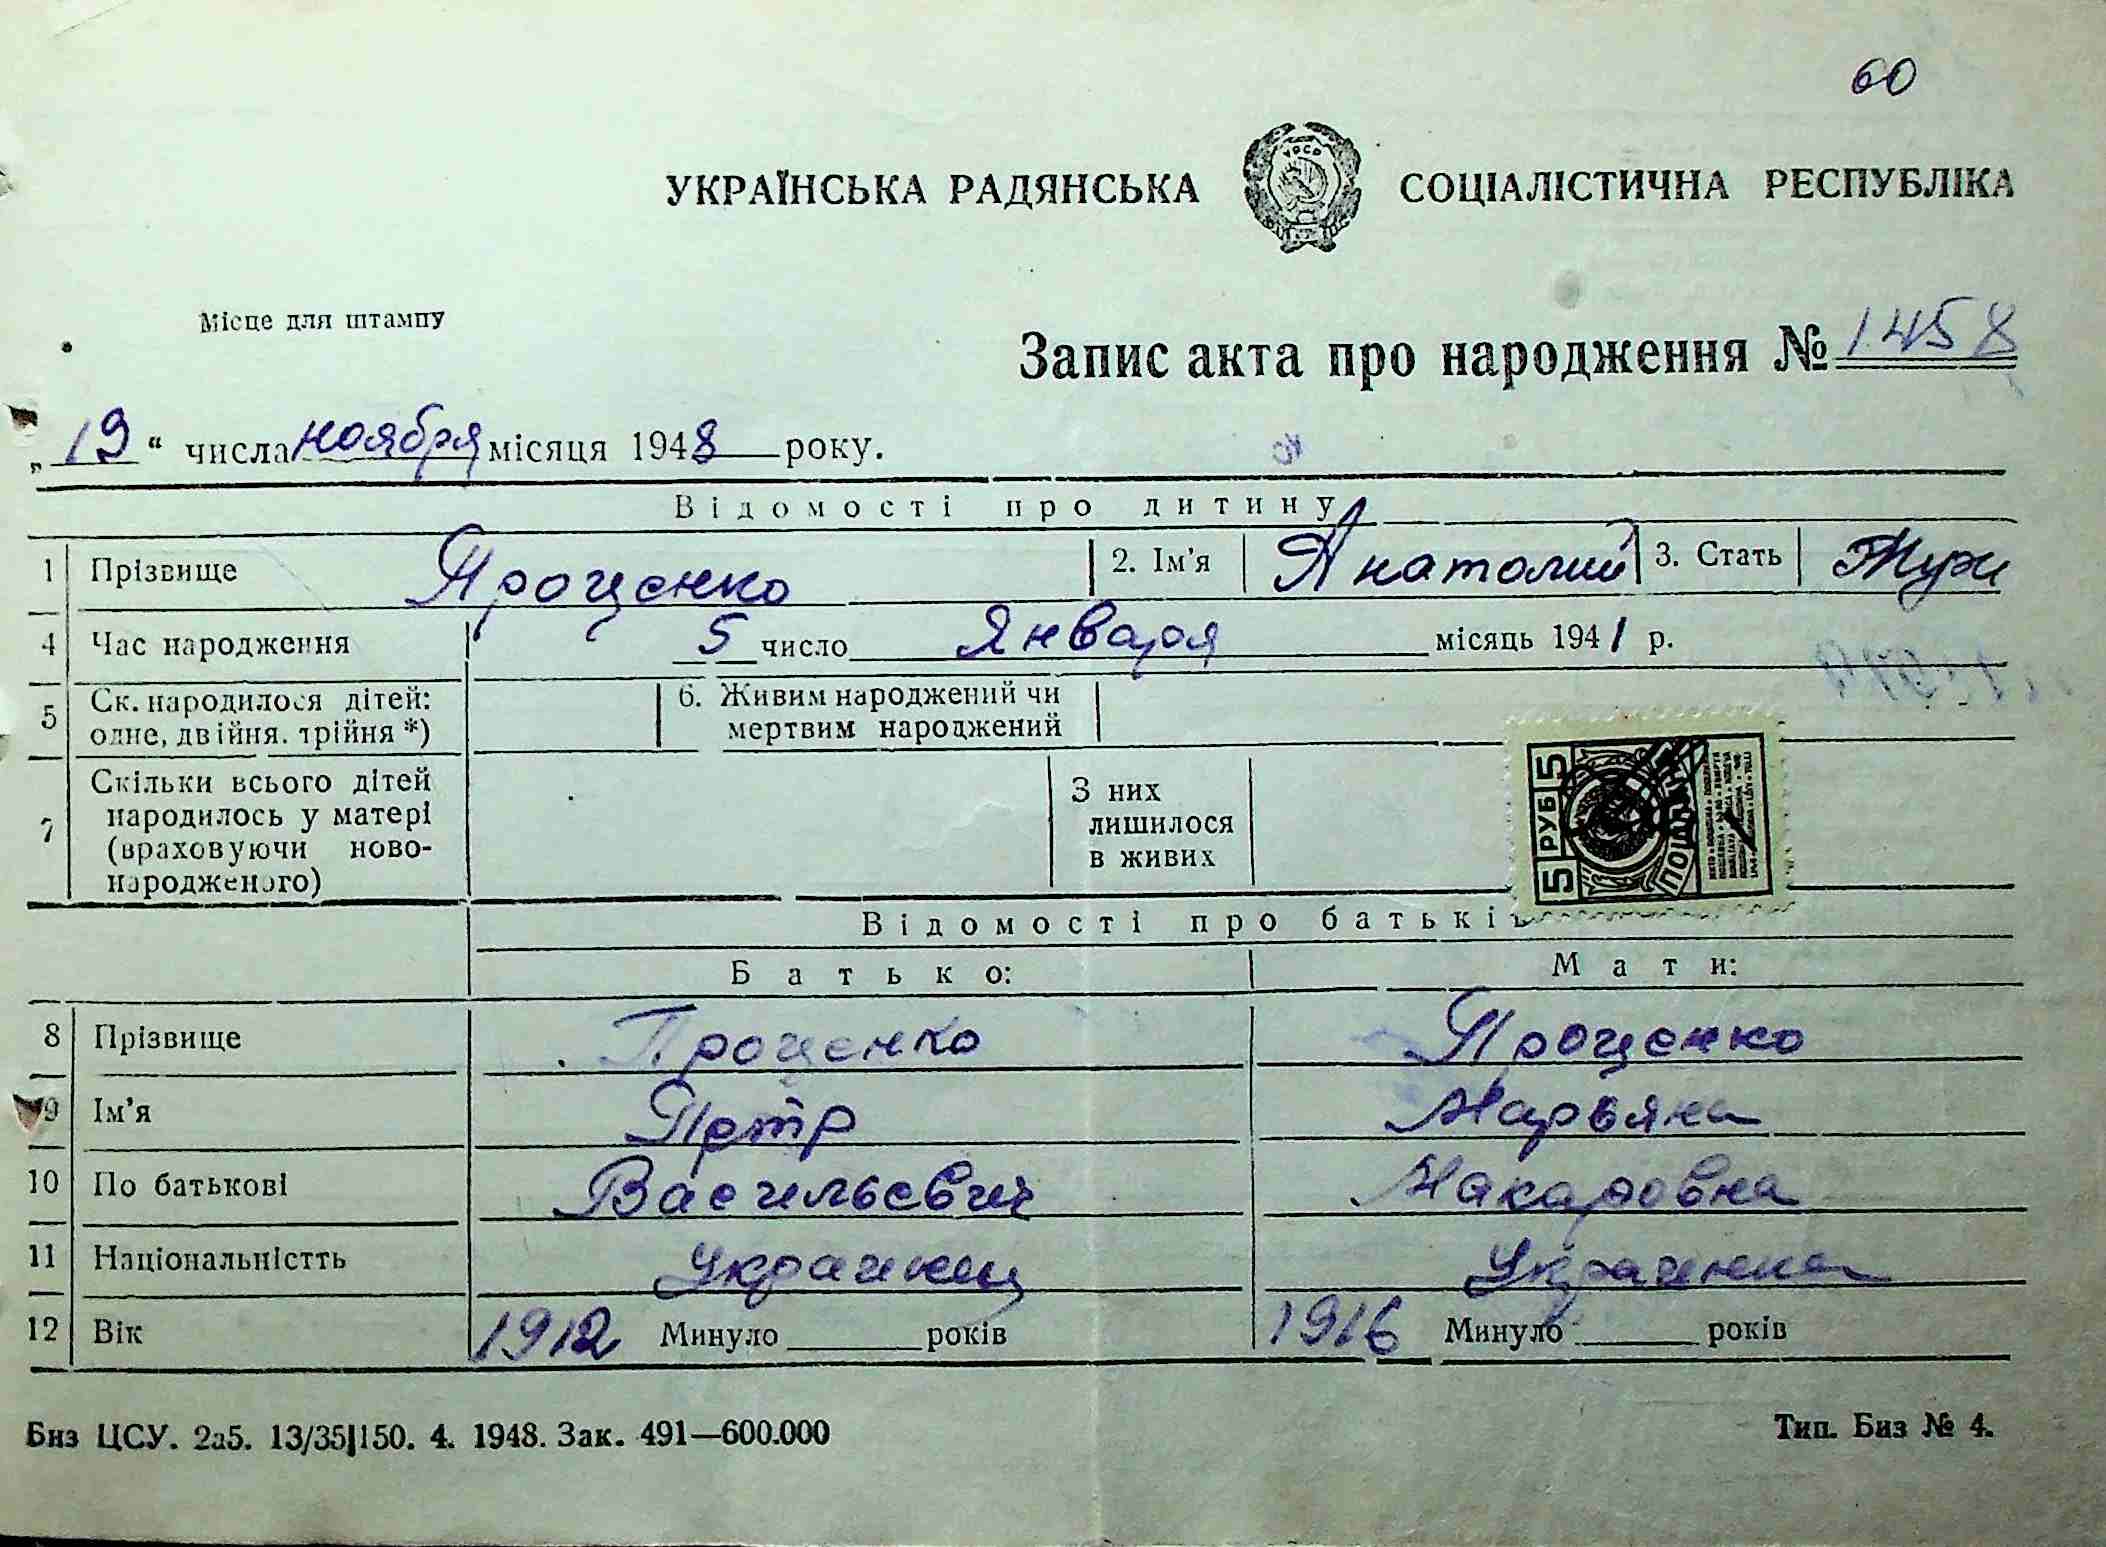 60
УКРАЇНСЬКА РАДЯНСЬКА СОЦІАЛІСТИЧНА РЕСПУБЛІКА
УРСР
Місце для штампу
Запис акта про народження № 1458
„19“ числа ноября місяця 1948 року.
Відомості про дитину
1 Прізвище Проценко 2. Ім'я Анатолий 3. Стать Муж
4 Час народження 5 число Января місяць 1941 р.
5 Ск. народилося дітей: 6. Живим народжений чи
одне, двійня, трійня *) мертвим народжений
7 Скільки всього дітей З них
народилось у матері лишилося
(враховуючи ново- в живих
народженого)
5 РУБ 5
Відомості про батьків
Батько: Мати:
8 Прізвище Проценко Проценко
9 Ім'я Петр Марьяна
10 По батькові Васильевич Макаровна
11 Національністть Украинец Украинка
12 Вік 1912 Минуло ______ років 1916 Минуло ______ років
Биз ЦСУ. 2а5. 13/35|150. 4. 1948. Зак. 491—600.000 Тип. Биз № 4.